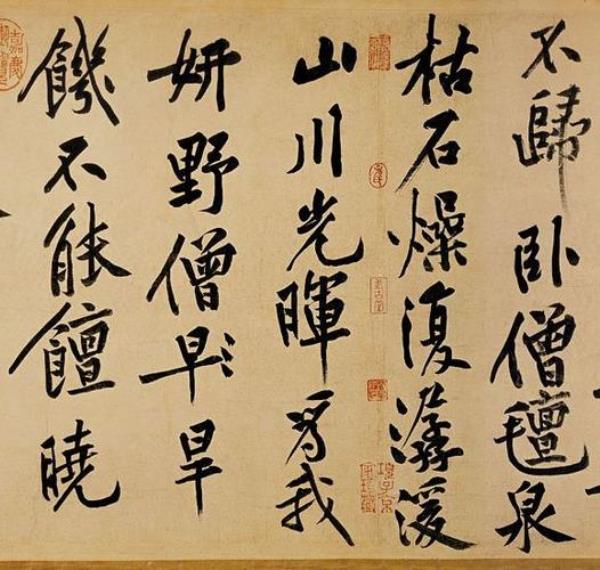 不歸臥僧氈泉
枯石燥復潺湲
山川光暉為我
妍野僧早旱
饑不能饘曉